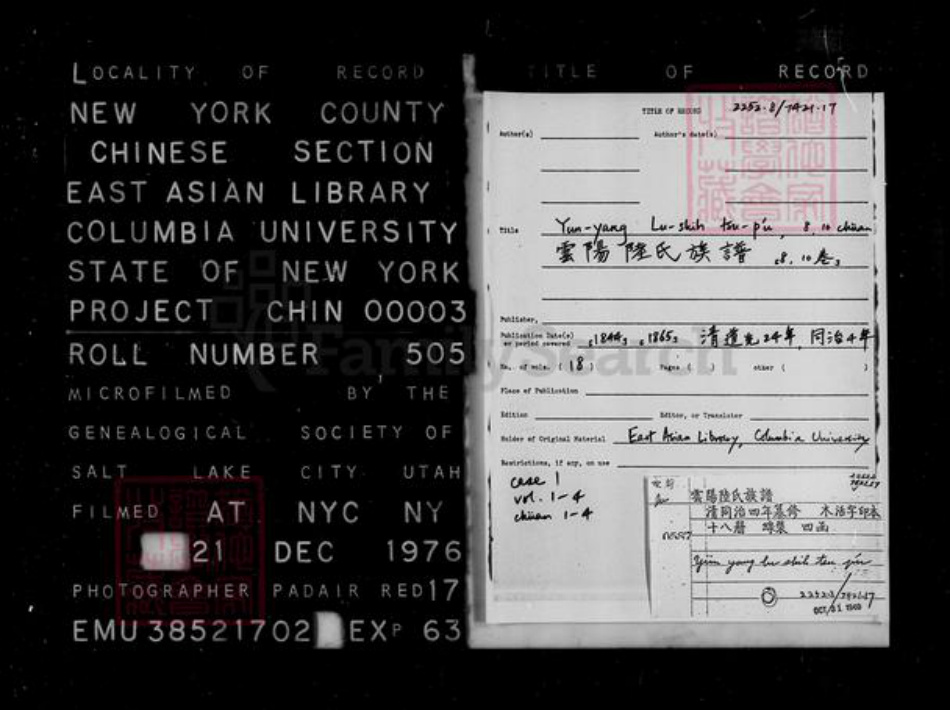 LOCALITY OF RECORD
NEW YORK COUNTY
CHINESE SECTION
EAST ASIAN LIBRARY
COLUMBIA UNIVERSITY
STATE OF NEW YORK
PROJECT CHIN 00003
ROLL NUMBER 505
MICROFILMED BY THE
GENEALOGICAL SOCIETY OF
SALT LAKE CITY UTAH
FILMED AT NYC NY
21 DEC 1976
PHOTOGRAPHER PADAIR RED 17
EMU 38521702 EXP 63
TITLE OF RECORD
TITLE OF RECORD 2252.8/7421.17
Author(s) Author's date(s)
Title Yun-yang Lu-shih tsu-p'u, 8, 10 chüan
雲陽陸氏族譜 8, 10卷
Publisher,
Publication Date(s) or period covered 1844, 1865, 清道光24年, 同治4年
No. of vols. (18) Pages ( ) other ( )
Place of Publication
Edition Editor, or Translator
Holder of Original Material East Asian Library, Columbia University
Restrictions, if any, on use
case 1
vol. 1-4
chüan 1-4
雲陽陸氏族譜
清同治四年 修 木活字印本
十八冊 四函
Yün yang lu shih tsu p'u
2252.8/7421.17
OCT 31
FamilySearch